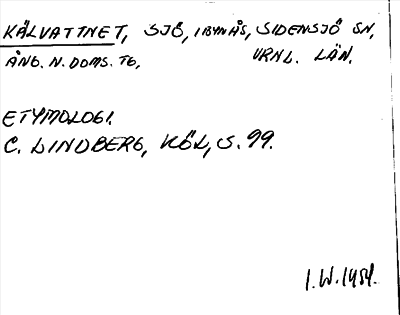 KÄLVATTNET, SJÖ, I BYN ÅS, SIDENSJÖ SN,
ÅNG. N. DOMS. TG, VRNL. LÄN.
ETYMOLOGI.
C. LINDBERG, KÖL, S. 99.
I.W. 1954.